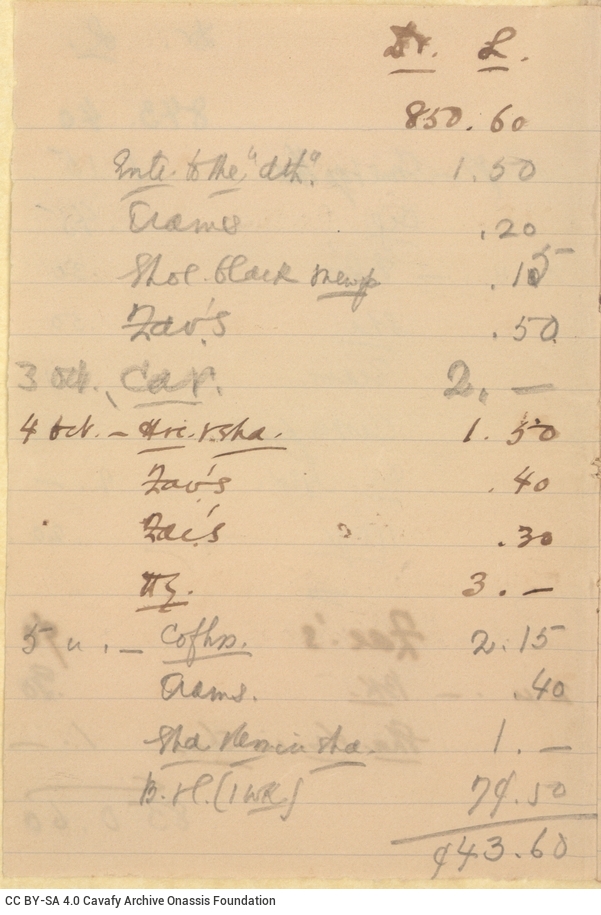 Dr. L.
850.60
Ente. to the "dth." 1.50
Trams .20
Shoe black newp .15
Zav's .50
3 Oct. Car. 2.—
4 Oct. — 1.50
Zav's .40
Zac's .30
3.—
5 " . — Cofhs. 2.15
Trams. .40
Sha sha. 1.—
B.H. (1 wk.) 79.50
943.60
CC BY-SA 4.0 Cavafy Archive Onassis Foundation